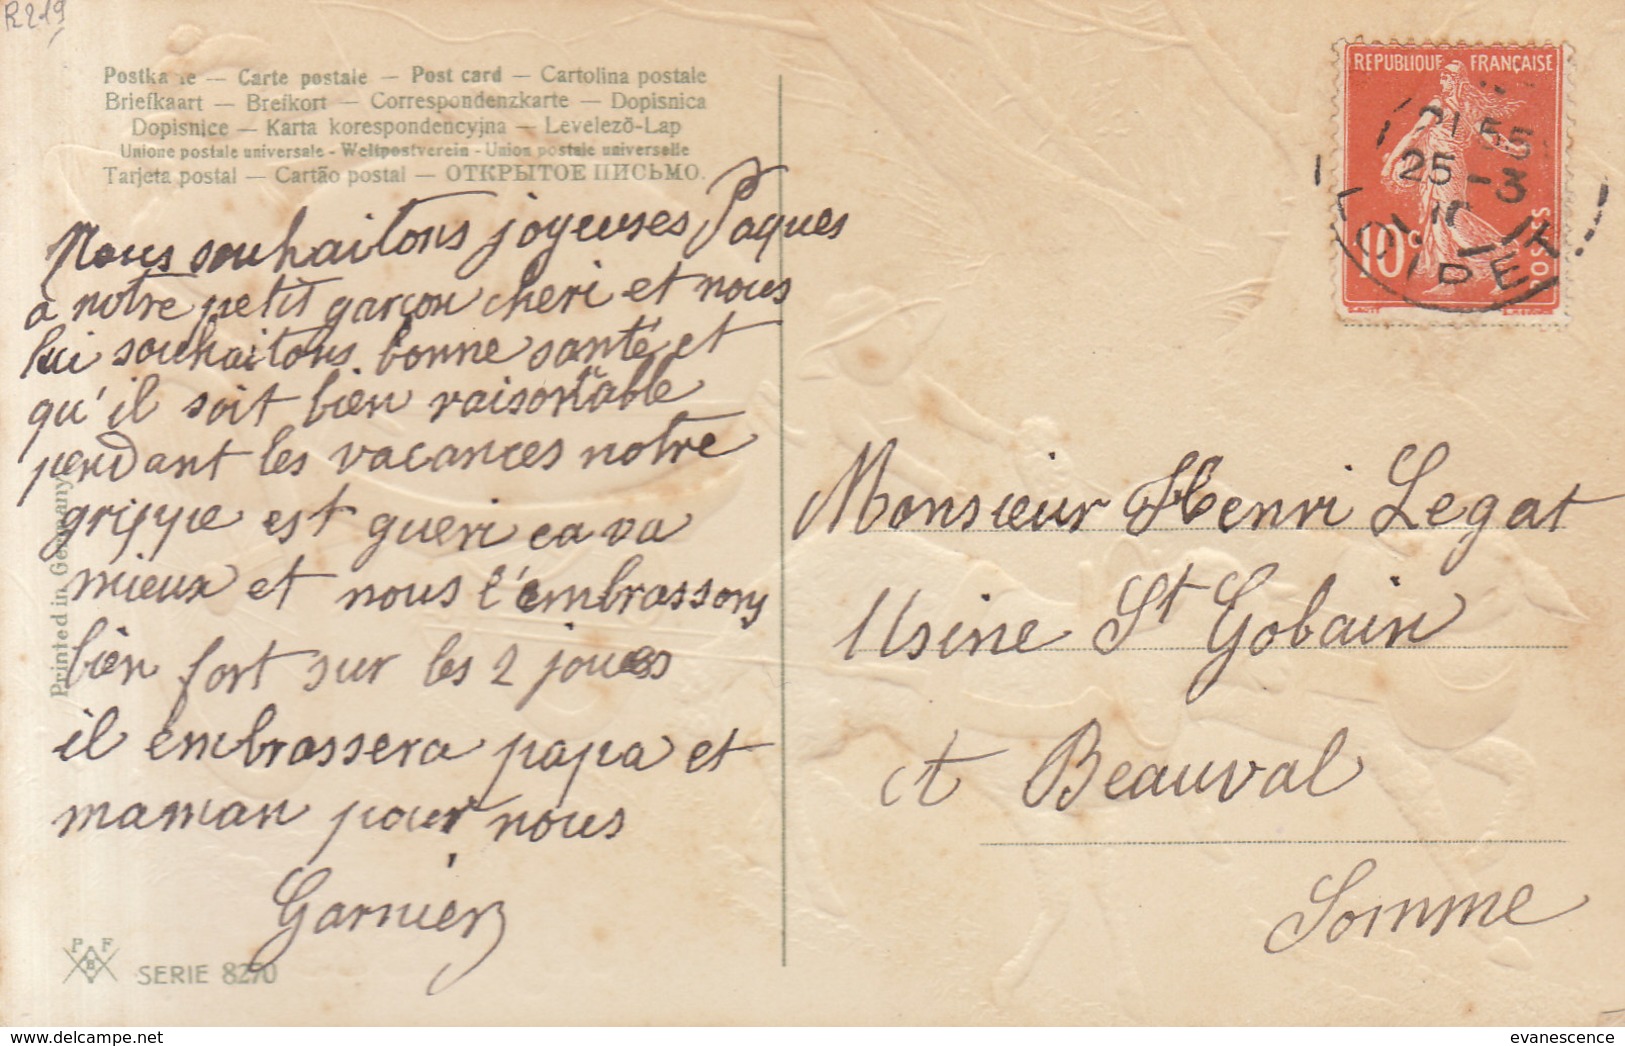 R219
Postka te — Carte postale — Post card — Cartolina postale
Briefkaart — Brefkort — Correspondenzkarte — Dopisnica
Dopisnice — Karta korespondencyjna — Levelezõ-Lap
Unione postale universale - Weltpostverein - Union postale universelle
Tarjeta postal — Cartão postal — ОТКРЫТОЕ ПИСЬМО.
Nous souhaitons joyeuses Paques
a notre petit garçon cheri et nous
lui souhaitons bonne santé et
qu'il soit bien raisonnable
pendant les vacances notre
grippe est gueri ca va
mieux et nous l'embrassons
bien fort sur les 2 joues
il embrassera papa et
maman pour nous
Garnier
Printed in Germany
P F
B
SERIE 8270
REPUBLIQUE FRANÇAISE
10c
POSTES
25 -3
Monsieur Henri Legat
Usine St Gobain
et Beauval
Somme
https://www.delcampe.net
evanescence